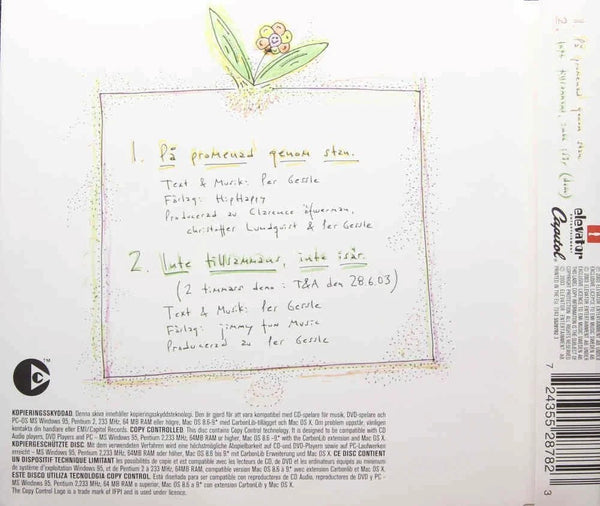 1. På promenad genom stan.
Text & Musik: Per Gessle
Förlag: HipHappy
Producerad av Clarence Öfwerman,
Christoffer Lundquist & Per Gessle
2. Inte tillsammans, inte isär.
(2 timmars demo: T&A den 28.6.03)
Text & Musik: Per Gessle
Förlag: Jimmy Fun Music
Producerad av Per Gessle
KOPIERINGSSKYDDAD. Denna skiva innehåller kopieringsskyddsteknologi. Den är gjord för att vara kompatibel med CD-spelare för musik, DVD-spelare och
PC-OS MS Windows 95, Pentium 2, 233 MHz, 64 MB RAM eller högre, Mac OS 8.6-9* med CarbonLib-tillägget och Mac OS X. Om problem uppstår, vänligen
kontakta din handlare eller EMI/Capitol Records. COPY CONTROLLED. This disc contains Copy Control technology. It is designed to be compatible with CD
Audio players, DVD Players and PC – MS Windows 95, Pentium 2,233 MHz, 64MB RAM or higher, Mac OS 8.6 -9* with the CarbonLib extension and MacOS X.
KOPIERGESCHÜTZTE DISC. Mit dem verwendeten Verfahren wird eine höchstmögliche Abspielbarkeit auf CD- und DVD-Playern sowie auf PC-Laufwerken
erreicht – MS Windows 95, Pentium 2,233 MHz, 64MB RAM oder höher, Mac OS 8.6 bis 9* mit CarbonLib Erweiterung und Mac OS X. CE DISC CONTIENT
UN DISPOSITIF TECHNIQUE LIMITANT les possibilités de copie et est compatible avec les lecteurs de CD, de DVD et les ordinateurs équipés au minimum
de système d'exploitation Windows 95, et de Pentium 2 à 233 MHz, 64MB de RAM, ou compatible Mac OS 8.6 à 9* avec extension Carbonlib et Mac OS X.
ESTE DISCO UTILIZA TECNOLOGIA COPY CONTROL. Está diseñado para ser compatible con reproductores de CD Audio, reproductores de DVD y PC -
MS Windows 95, Pentium 2,233 MHz, 64 MB RAM o superior, Mac OS 8.6 a 9* con extensión CarbonLib y Mac OS X.
The Copy Control Logo is a trade mark of IFPI and is used under licence.
1. På promenad genom stan
2. Inte tillsammans, inte isär (demo)
elevator
ENTERTAINMENT
Capitol
7 24355 28782 3